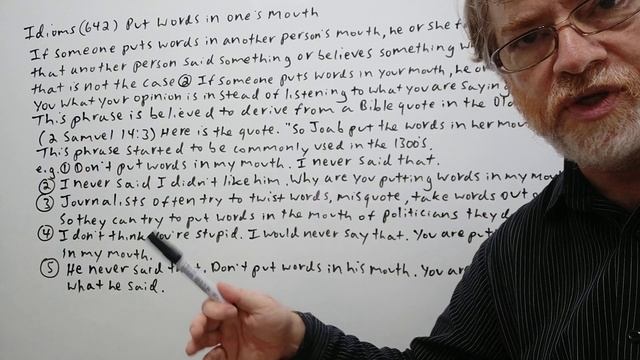 Idioms (642) Put words in one's mouth
If someone puts words in another person's mouth, he or she f
that another person said something or believes something w
that is not the case ② If someone puts words in your mouth, he or
you what your opinion is instead of listening to what you are saying
This phrase is believed to derive from a Bible quote in the Old
(2 Samuel 14:3) Here is the quote. "So Joab put the words in her mou
This phrase started to be commonly used in the 1300's.
e.g. ① Don't put words in my mouth. I never said that.
② I never said I didn't like him. Why are you putting words in my mou
③ Journalists often try to twist words, misquote, take words out o
so they can try to put words in the mouth of politicians they d
④ I don't think you're stupid. I would never say that. You are put
in my mouth.
⑤ He never said that. Don't put words in his mouth. You are
what he said.